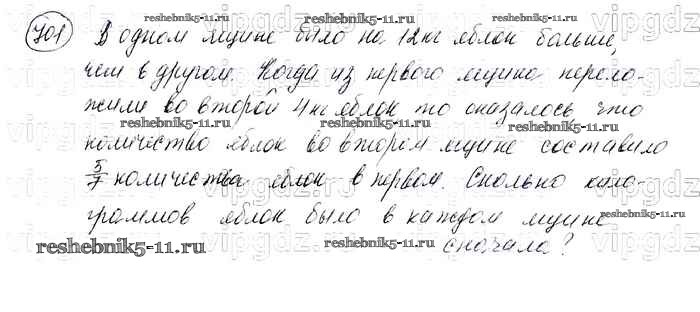 701 В одном ящике было на 12 кг яблок больше,
чем в другом. Когда из первого ящика перело-
жили во второй 4 кг яблок то оказалось что
количество яблок во втором ящике составило
5/7 количества яблок в первом. Сколько кило-
граммов яблок было в каждом ящике
сначала?
reshebnik5-11.ru
reshebnik5-11.ru
reshebnik5-11.ru
reshebnik5-11.ru
reshebnik5-11.ru
reshebnik5-11.ru
reshebnik5-11.ru